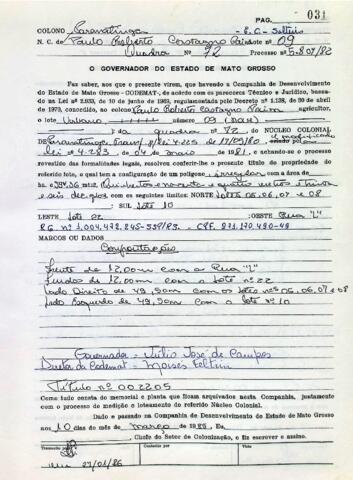 PAG. 031
COLONO Paranatinga E.C. Setter
N. C. de Paulo Roberto Castagno Lote nº 09
Quadra nº 72 Processo nº 5.807/82
O GOVERNADOR DO ESTADO DE MATO GROSSO
Faz saber, aos que o presente virem, que havendo a Companhia de Desenvolvimento
do Estado de Mato Grosso - CODEMAT, de acordo com os pareceres Técnico e Jurídico, baseada
na Lei nº 2.933, de 10 de junho de 1969, regulamentada pelo Decreto nº 1.138, de 20 de abril
de 1970, concedido, ao colono Paulo Roberto Castagno agricultor,
o lote Urbano número 09 (nove)
da quadra nº 72 DO NÚCLEO COLONIAL
de Paranatinga 17/09/80 modificado
lei nº 4.283 de maio de 1981, e achando-se o processo
revestido das formalidades legais, resolveu conferir-lhe o presente título de propriedade do
referido lote, o qual tem a configuração de um polígono irregular com a área de
ha 594,36 m2 Quinhentos e noventa e quatro metros e trinta
e seis dez com os seguintes limites: NORTE lotes 05,06,07 e 08
SUL lote 10
LESTE lote 22 OESTE Rua "L"
RG nº CPF.
MARCOS OU DADOS Confrontações
Frente de 12,00m com a Rua "L"
Fundos de 12,00m com o lote nº 22
Lado Direito de 49,50m com os lotes nºs 05,06,07 e 08
Lado Esquerdo de 49,50m com o lote nº 10
Governador - Júlio José de Campos
Diretor da Codemat - Moises Feltrin
Título nº 002205
Como tudo consta do memorial e planta que ficam arquivados nesta Companhia, juntamente
com o processo de medição e loteamento do referido Núcleo Colonial.
Dado e passado na Companhia de Desenvolvimento do Estado de Mato Grosso
aos 10 dias do mês de março de 1986, Eu,
Chefe do Setor de Colonização, o fiz escrever e assino.
Transcrito por Conferido por Visto
27/01/86